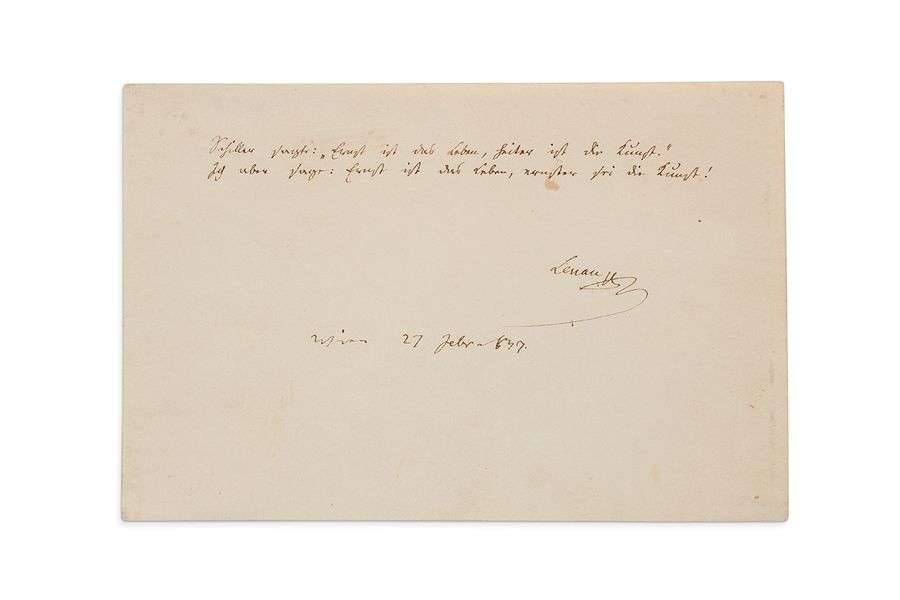 Schiller sagte: „Ernst ist das Leben, heiter ist die Kunst."
Ich aber sage: Ernst ist das Leben, ernster sei die Kunst!
Lenau
Wien 27 Febr